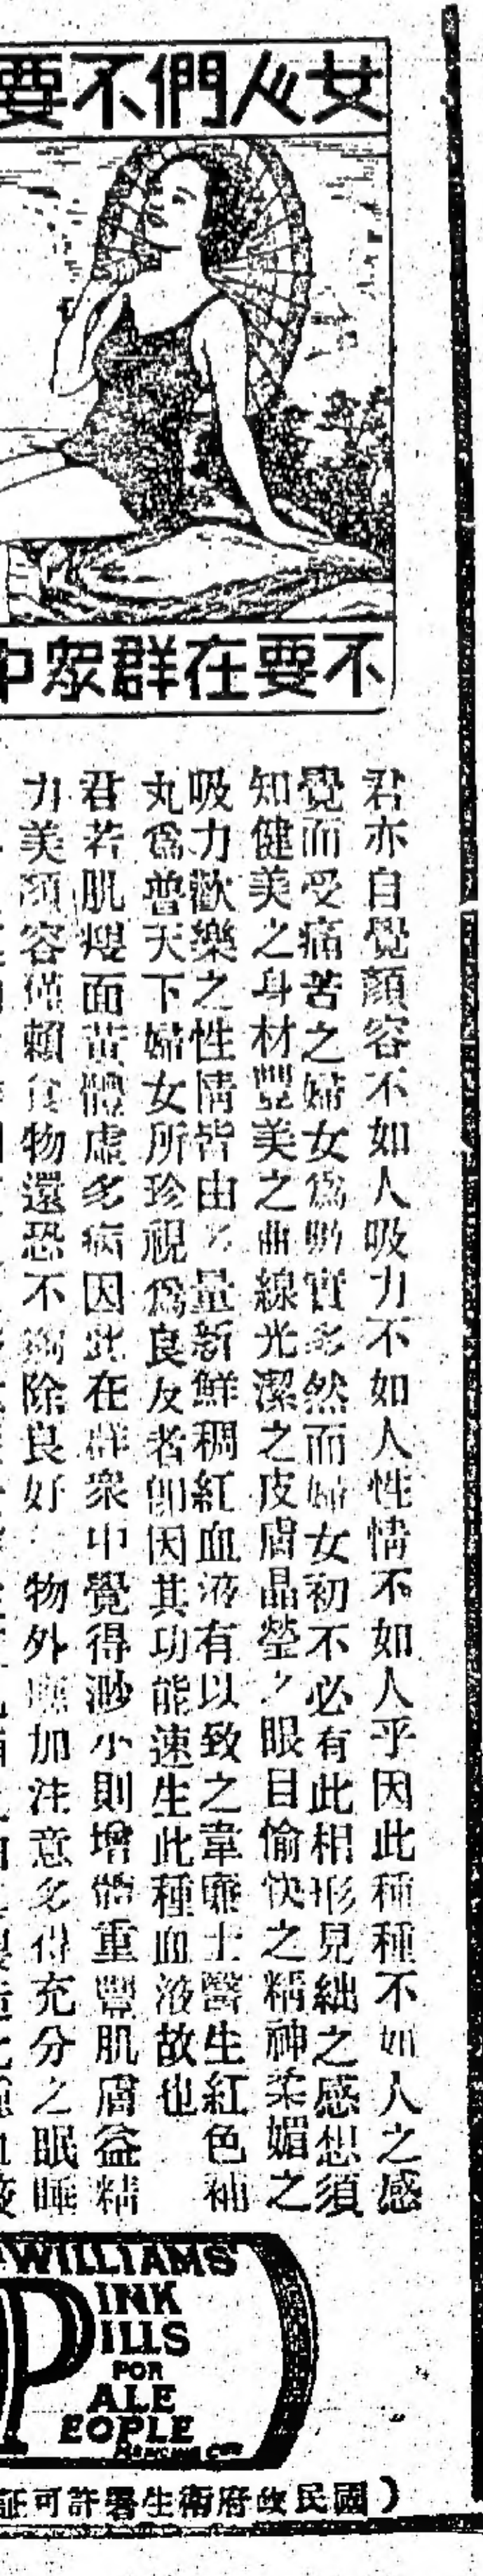 女人們不要
不要在群眾中
君亦自覺顏容不如人吸力不如人性情不如人乎因此種種不如人之感
覺而受痛苦之婦女為數實多然而婦女初不必有此相形見絀之感想須
知健美之身材豐美之曲線光潔之皮膚晶瑩之眼目愉快之精神柔媚之
吸力歡樂之性情皆由多量新鮮稠紅血液有以致之韋廉士醫生紅色補
丸為普天下婦女所珍視為良友者卽因其功能速生此種血液故也
君若肌瘦面黃體虛多病因此在群衆中覺得渺小則增體重豐肌膚益精
力美顏容僅賴食物還恐不夠除良好物外應加注意多得充分之眠睡
WILLIAMS'
PINK
PILLS
FOR
PALE
PEOPLE
(國民政府衛生署許可証